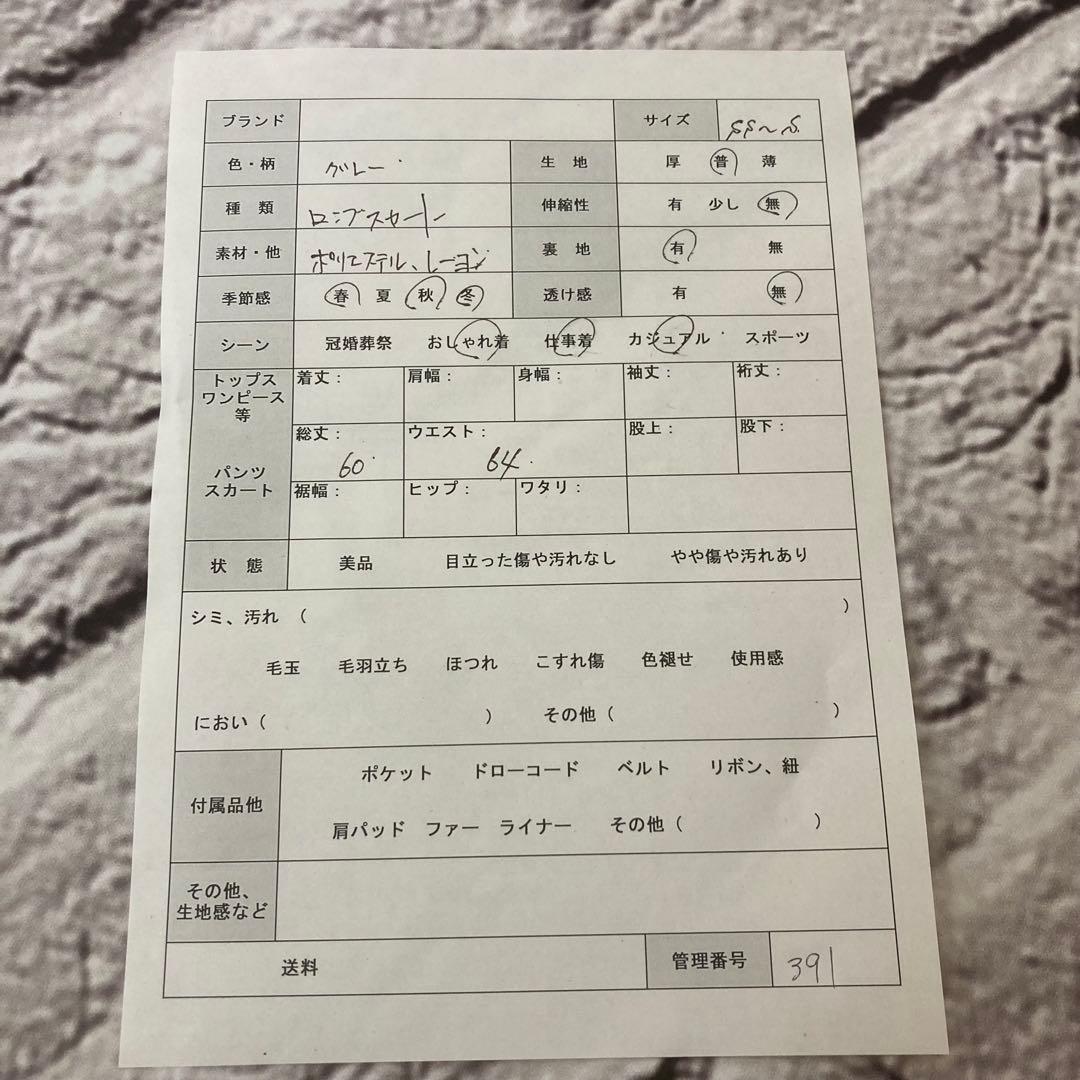 ブランド サイズ SS~S.
色・柄 グレー 生 地 厚 普 薄
種 類 ロングスカート 伸縮性 有 少し 無
素材・他 ポリエステル、レーヨン 裏 地 有 無
季節感 春 夏 秋 冬 透け感 有 無
シーン 冠婚葬祭 おしゃれ着 仕事着 カジュアル スポーツ
トップス ワンピース 等 着丈: 肩幅: 身幅: 袖丈: 裄丈:
パンツ スカート 総丈: 60 ウエスト: 64 股上: 股下:
裾幅: ヒップ: ワタリ:
状 態 美品 目立った傷や汚れなし やや傷や汚れあり
シミ、汚れ ( )
毛玉 毛羽立ち ほつれ こすれ傷 色褪せ 使用感
におい( ) その他( )
付属品他 ポケット ドローコード ベルト リボン、紐
肩パッド ファー ライナー その他( )
その他、
生地感など
送料 管理番号 391